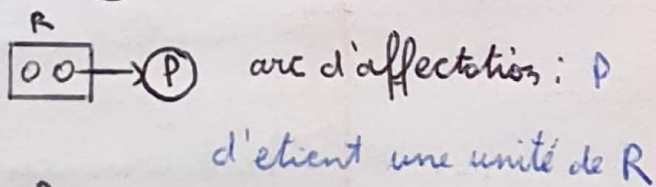 R
P arc d'affectation : P
d'etient une unité de R